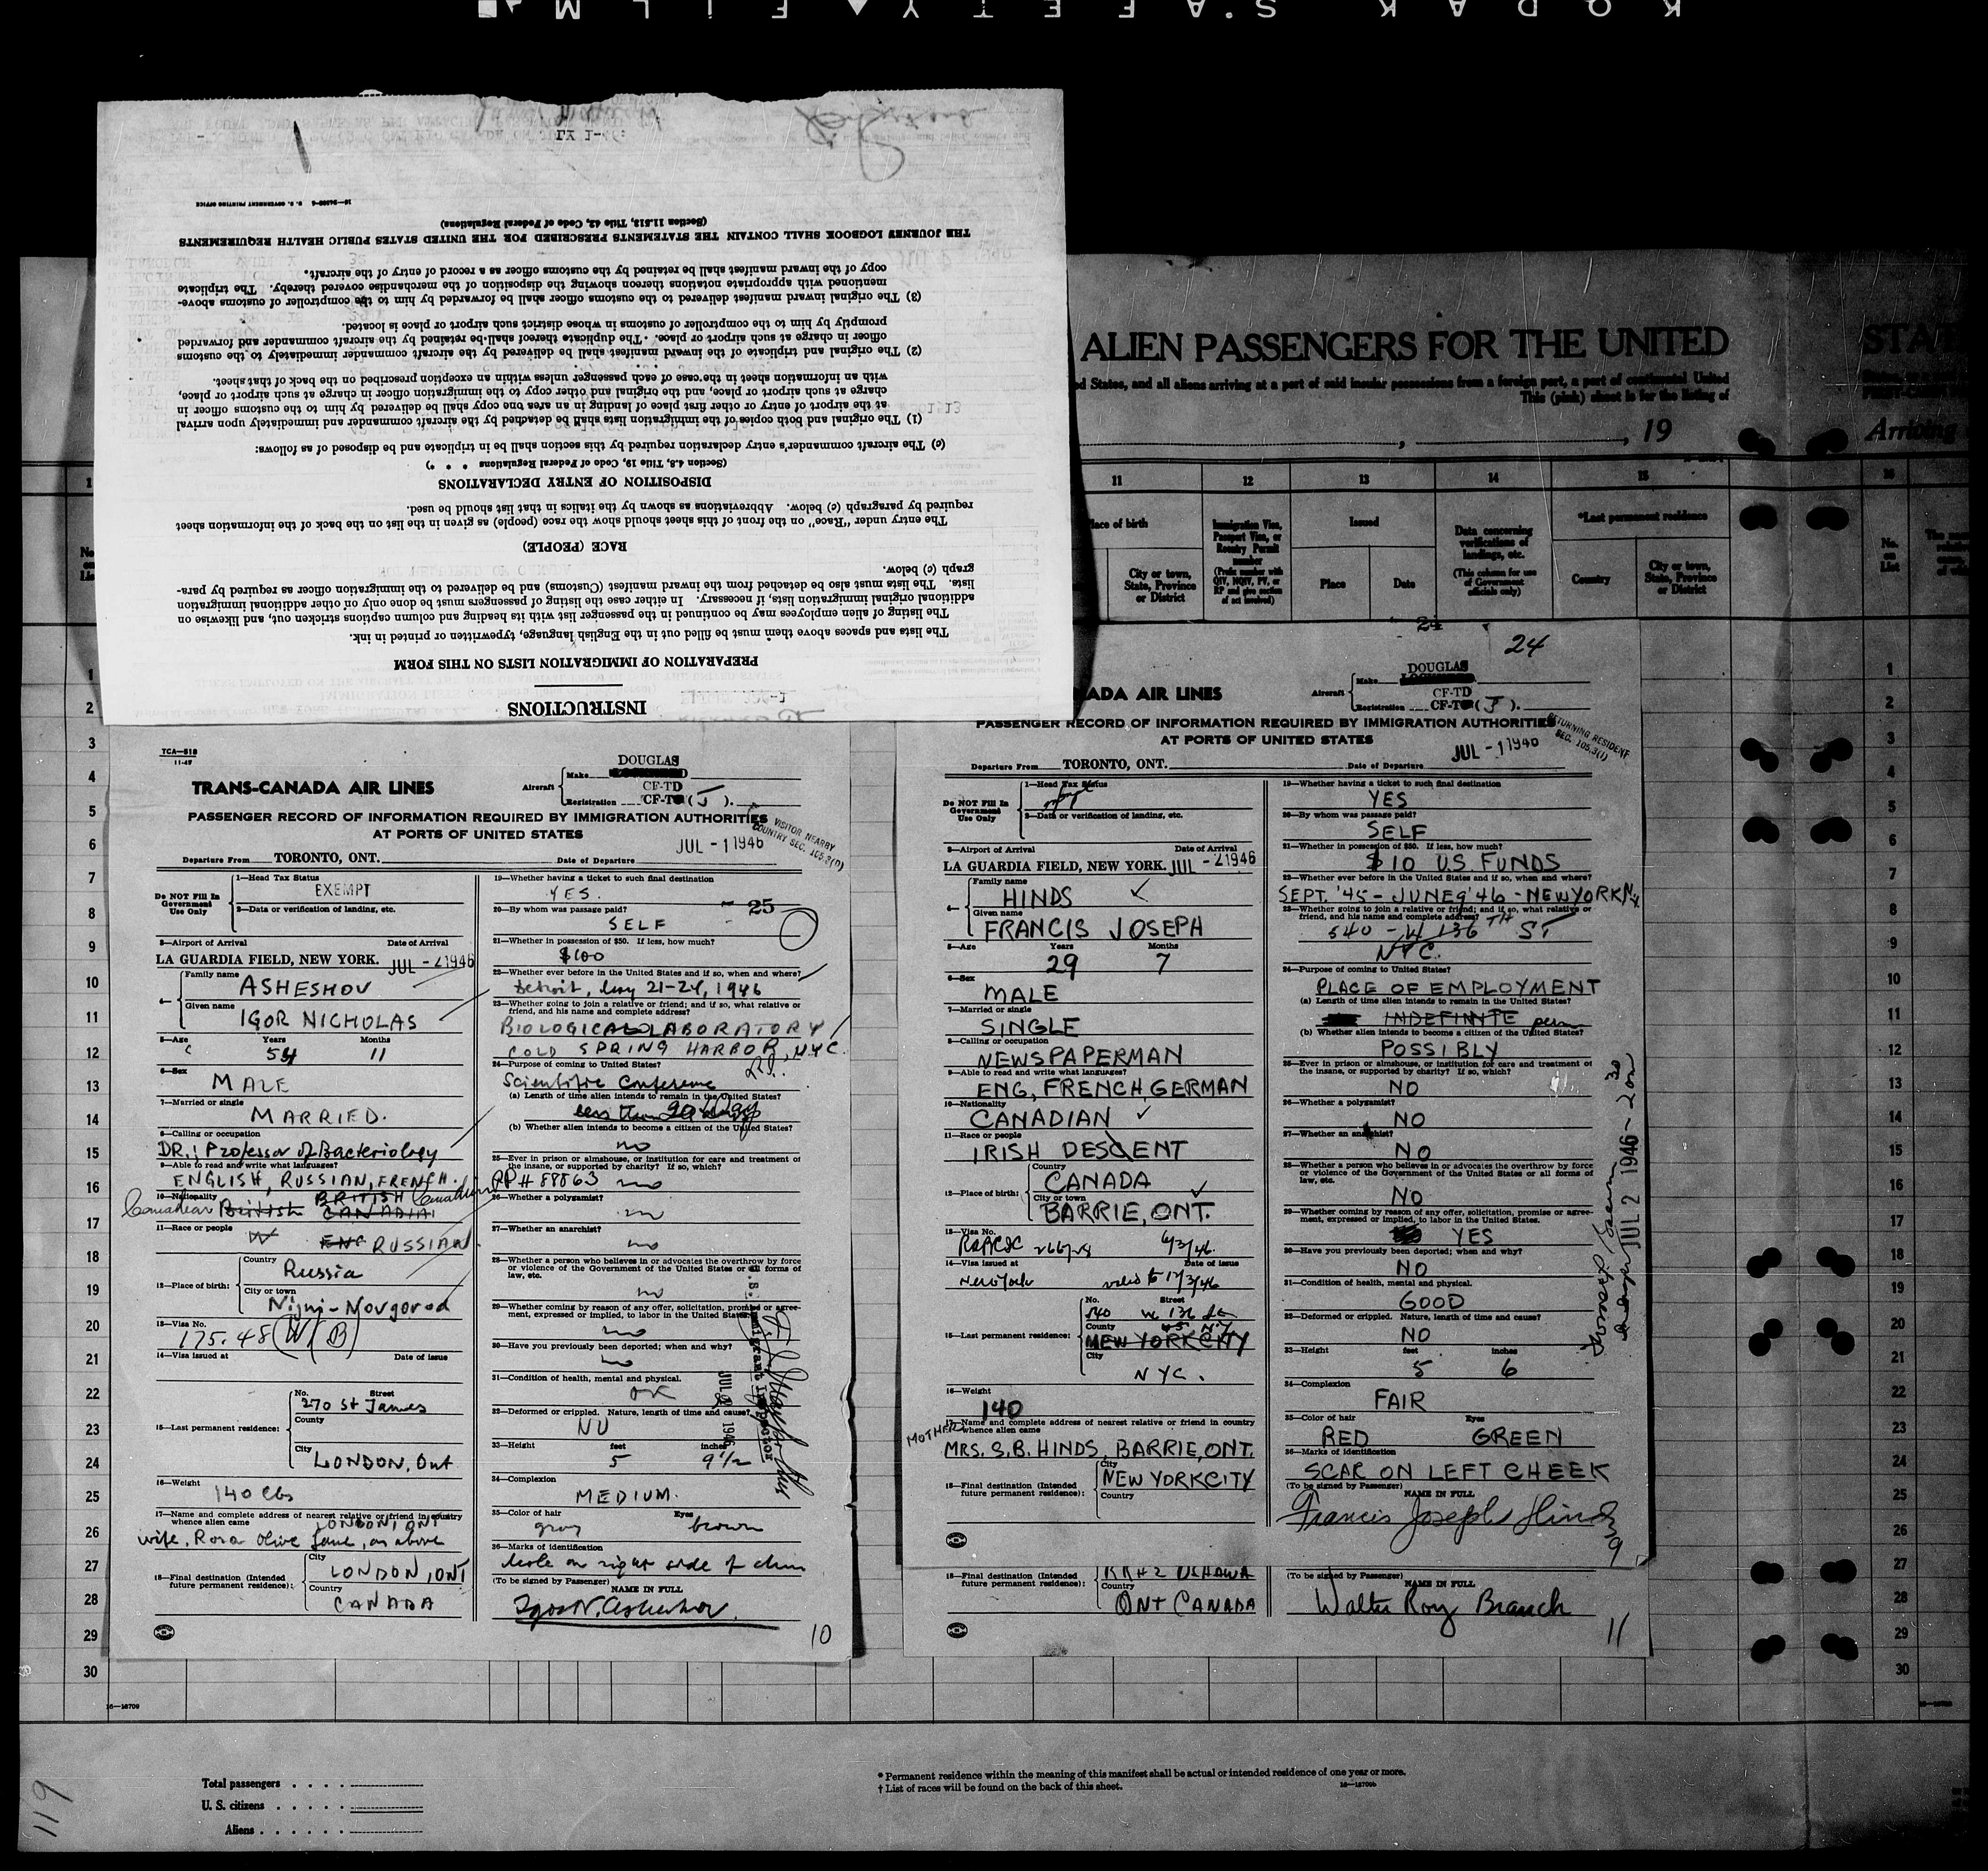 KODAK SAFETY FILM
INSTRUCTIONS
PREPARATION OF IMMIGRATION LISTS ON THIS FORM
The lists and spaces above them must be filled out in the English language, typewritten or printed in ink.
The listing of alien employees may be continued in the passenger list with its heading and column captions stricken out, and likewise on
additional original immigration lists, if necessary. In either case the listing of passengers must be done only on other additional immigration
lists. The lists must also be detached from the inward manifest (Customs) and be delivered to the immigration officer as required by para-
graph (c) below.
RACE (PEOPLE)
The entry under "Race" on the front of this sheet should show the race (people) as given in the list on the back of the information sheet
required by paragraph (c) below. Abbreviations as shown by the italics in that list should be used.
DISPOSITION OF ENTRY DECLARATIONS
(Section 4.8, Title 19, Code of Federal Regulations * * *)
(c) The aircraft commander's entry declaration required by this section shall be in triplicate and be disposed of as follows:
(1) The original and both copies of the immigration lists shall be detached by the aircraft commander and immediately upon arrival
at the airport of entry or other first place of landing in an area one copy shall be delivered by him to the customs officer in
charge at such airport or place, and the original and other copy to the immigration officer in charge at such airport or place,
with an information sheet in the case of each passenger unless within an exception prescribed on the back of that sheet.
(2) The original and triplicate of the inward manifest shall be delivered by the aircraft commander immediately to the customs
officer in charge at such airport or place. The duplicate thereof shall be retained by the aircraft commander and forwarded
promptly by him to the comptroller of customs in whose district such airport or place is located.
(3) The original inward manifest delivered to the customs officer shall be forwarded by him to the comptroller of customs above-
mentioned with appropriate notations thereon showing the disposition of the merchandise covered thereby. The triplicate
copy of the inward manifest shall be retained by the customs officer as a record of entry of the aircraft.
THE JOURNEY LOGBOOK SHALL CONTAIN THE STATEMENTS PRESCRIBED FOR THE UNITED STATES PUBLIC HEALTH REQUIREMENTS
(Section 11.513, Title 42, Code of Federal Regulations)
U. S. GOVERNMENT PRINTING OFFICE
ALIEN PASSENGERS FOR THE UNITED
STAT
d States, and all aliens arriving at a part of said insular possessions from a foreign port, a part of continental United
This (pink) sheet is for the listing of
, 19
Arriving
11 12 13 14 15 16
lace of birth
City or town, State, Province or District
Immigration Visa, Passport Visa, or Reentry Permit number
(Prefix number with QIV, NQIV, PV, or RP and give section of act involved)
Issued
Place
Date
Data concerning verifications of landings, etc.
(This column for use of Government officials only)
*Last permanent residence
Country
City or town, State, Province or District
No. on List
TCA—518
11-45
TRANS-CANADA AIR LINES
Aircraft
Make DOUGLAS
Registration CF-TD
CF-T (J).
PASSENGER RECORD OF INFORMATION REQUIRED BY IMMIGRATION AUTHORITIES
AT PORTS OF UNITED STATES
VISITOR NEARBY
COUNTRY SEC. 105.3(1)
JUL -1 1946
Departure From TORONTO, ONT. Date of Departure
Do NOT Fill In Government Use Only
1—Head Tax Status
EXEMPT
2—Data or verification of landing, etc.
3—Airport of Arrival Date of Arrival
LA GUARDIA FIELD, NEW YORK. JUL -2 1946
4—
Family name
ASHESHOV
Given name
IGOR NICHOLAS
5—Age Years Months
54 11
6—Sex
MALE
7—Married or single
MARRIED.
8—Calling or occupation
DR.; Professor of Bacteriology
9—Able to read and write what languages?
ENGLISH, RUSSIAN, FRENCH.
10—Nationality
Canadian British BRITISH Canadian
CANADIAN
11—Race or people
W ENG RUSSIAN
12—Place of birth:
Country
Russia
City or town
Nijni-Novgorod
13—Visa No.
175.48 (W/B)
14—Visa issued at Date of issue
15—Last permanent residence:
No. Street
270 St James
County
City
LONDON, Ont
16—Weight
140 lbs
17—Name and complete address of nearest relative or friend in country whence alien came
LONDON, ONT
wife, Rosa Olive Jane, as above
18—Final destination (Intended future permanent residence):
City
LONDON, ONT
Country
CANADA
19—Whether having a ticket to such final destination
YES.
- 25
20—By whom was passage paid?
SELF
21—Whether in possession of $50. If less, how much?
$100
22—Whether ever before in the United States and if so, when and where?
Detroit, May 21-24, 1946
23—Whether going to join a relative or friend; and if so, what relative or friend, and his name and complete address?
BIOLOGICAL LABORATORY
COLD SPRING HARBOR, NYC.
L.I.
24—Purpose of coming to United States?
Scientific Conference
(a) Length of time alien intends to remain in the United States?
less than
(b) Whether alien intends to become a citizen of the United States?
no
25—Ever in prison or almshouse, or institution for care and treatment of the insane, or supported by charity? If so, which?
PP# 88863 no
26—Whether a polygamist?
no
27—Whether an anarchist?
no
28—Whether a person who believes in or advocates the overthrow by force or violence of the Government of the United States or all forms of law, etc.
no
29—Whether coming by reason of any offer, solicitation, promise or agreement, expressed or implied, to labor in the United States.
no
30—Have you previously been deported; when and why?
no
31—Condition of health, mental and physical.
OK
32—Deformed or crippled. Nature, length of time and cause?
NO
33—Height feet inches
5 9 1/2
34—Complexion
MEDIUM.
35—Color of hair Eyes
gray brown
36—Marks of identification
Mole on right side of chin
(To be signed by Passenger)
NAME IN FULL
Igor N. Asheshov
10
U.S. Immigrant Inspector
JUL 2 1946
24
24
ADA AIR LINES
Aircraft
Make DOUGLAS
Registration CF-TD
CF-T (J).
PASSENGER RECORD OF INFORMATION REQUIRED BY IMMIGRATION AUTHORITIES
AT PORTS OF UNITED STATES
RETURNING RESIDENT
SEC. 105.3(1)
JUL -1 1946
Departure From TORONTO, ONT. Date of Departure
Do NOT Fill In Government Use Only
1—Head Tax Status
2—Data or verification of landing, etc.
3—Airport of Arrival Date of Arrival
LA GUARDIA FIELD, NEW YORK. JUL -2 1946
4—
Family name
HINDS
Given name
FRANCIS JOSEPH
5—Age Years Months
29 7
6—Sex
MALE
7—Married or single
SINGLE
8—Calling or occupation
NEWSPAPERMAN
9—Able to read and write what languages?
ENG, FRENCH, GERMAN
10—Nationality
CANADIAN
11—Race or people
IRISH DESCENT
12—Place of birth:
Country
CANADA
City or town
BARRIE, ONT.
13—Visa No.
6/3/46.
14—Visa issued at Date of issue
New York valid to 12/3/46
15—Last permanent residence:
No. Street
540 W 136 St
County
NEW YORK CITY
City
NYC.
16—Weight
140
17—Name and complete address of nearest relative or friend in country whence alien came
MOTHER
MRS. S.B. HINDS, BARRIE, ONT.
18—Final destination (Intended future permanent residence):
City
NEW YORK CITY
Country
19—Whether having a ticket to such final destination
YES
20—By whom was passage paid?
SELF
21—Whether in possession of $50. If less, how much?
$10 U.S. FUNDS
22—Whether ever before in the United States and if so, when and where?
SEPT. '45 - JUNE 9 '46 - NEW YORK N.Y.
23—Whether going to join a relative or friend; and if so, what relative or friend, and his name and complete address?
540 - W 136TH ST
NYC.
24—Purpose of coming to United States?
PLACE OF EMPLOYMENT
(a) Length of time alien intends to remain in the United States?
INDEFINITE perm
(b) Whether alien intends to become a citizen of the United States?
POSSIBLY
25—Ever in prison or almshouse, or institution for care and treatment of the insane, or supported by charity? If so, which?
NO
26—Whether a polygamist?
NO
27—Whether an anarchist?
NO
28—Whether a person who believes in or advocates the overthrow by force or violence of the Government of the United States or all forms of law, etc.
NO
29—Whether coming by reason of any offer, solicitation, promise or agreement, expressed or implied, to labor in the United States.
YES
30—Have you previously been deported; when and why?
NO
31—Condition of health, mental and physical.
GOOD
32—Deformed or crippled. Nature, length of time and cause?
NO
33—Height feet inches
5 6
34—Complexion
FAIR
35—Color of hair Eyes
RED GREEN
36—Marks of identification
SCAR ON LEFT CHEEK
(To be signed by Passenger)
NAME IN FULL
Francis Joseph Hinds
9
JUL 2 1946
18—Final destination (Intended future permanent residence):
RR#2 OSHAWA
Country
ONT CANADA
(To be signed by Passenger)
NAME IN FULL
Walter Roy Branch
11
1
2
3
4
5
6
7
8
9
10
11
12
13
14
15
16
17
18
19
20
21
22
23
24
25
26
27
28
29
30
16—18709
Total passengers
U. S. citizens
Aliens
* Permanent residence within the meaning of this manifest shall be actual or intended residence of one year or more.
† List of races will be found on the back of this sheet.
119